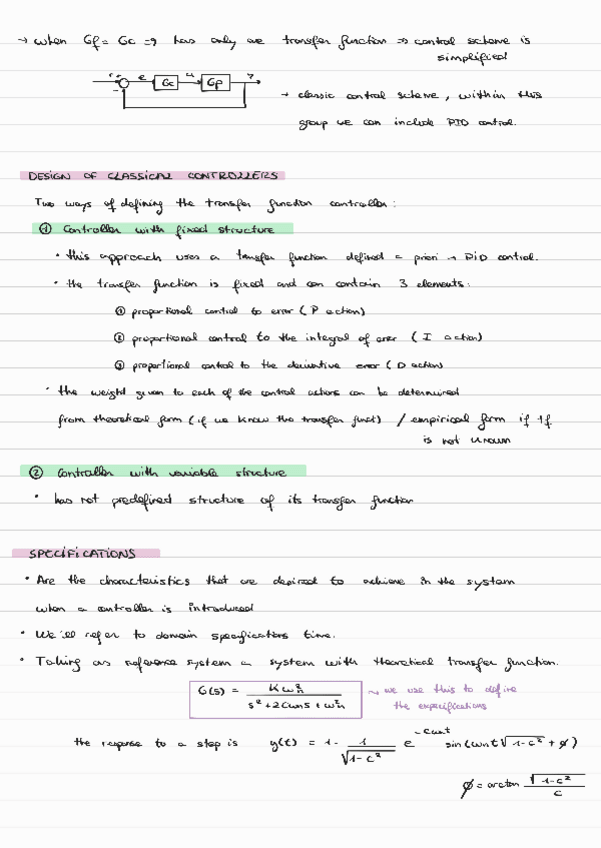 → when Gf = Gc => has only one transfer function => control scheme is
simplified
r + e Gc u Gp y
-
→ classic control scheme, within this
group we can include PID control.
DESIGN OF CLASSICAL CONTROLLERS
Two ways of defining the transfer function controller:
① Controller with fixed structure
• this approach uses a transfer function defined a priori → PID control.
• the transfer function is fixed and can contain 3 elements:
① proportional control to error (P action)
② proportional control to the integral of error (I action)
③ proportional control to the derivative error (D action)
• the weight given to each of the control actions can be determined
from theoretical form (if we know the transfer funct) / empirical form if tf
is not known
② Controller with variable structure
• has not predefined structure of its transfer function
SPECIFICATIONS
• Are the characteristics that are desired to achieve in the system
when a controller is introduced
• We'll refer to domain specifications time.
• Taking as reference system a system with theoretical transfer function.
G(s) = Kωn² / s² + 2ζωns + ωn² → we use this to define
the especifications
the response to a step is y(t) = 1 - 1/√1-ζ² e^-ζωnt sin(ωnt√1-ζ² + φ)
φ = arctan √1-ζ² / ζ